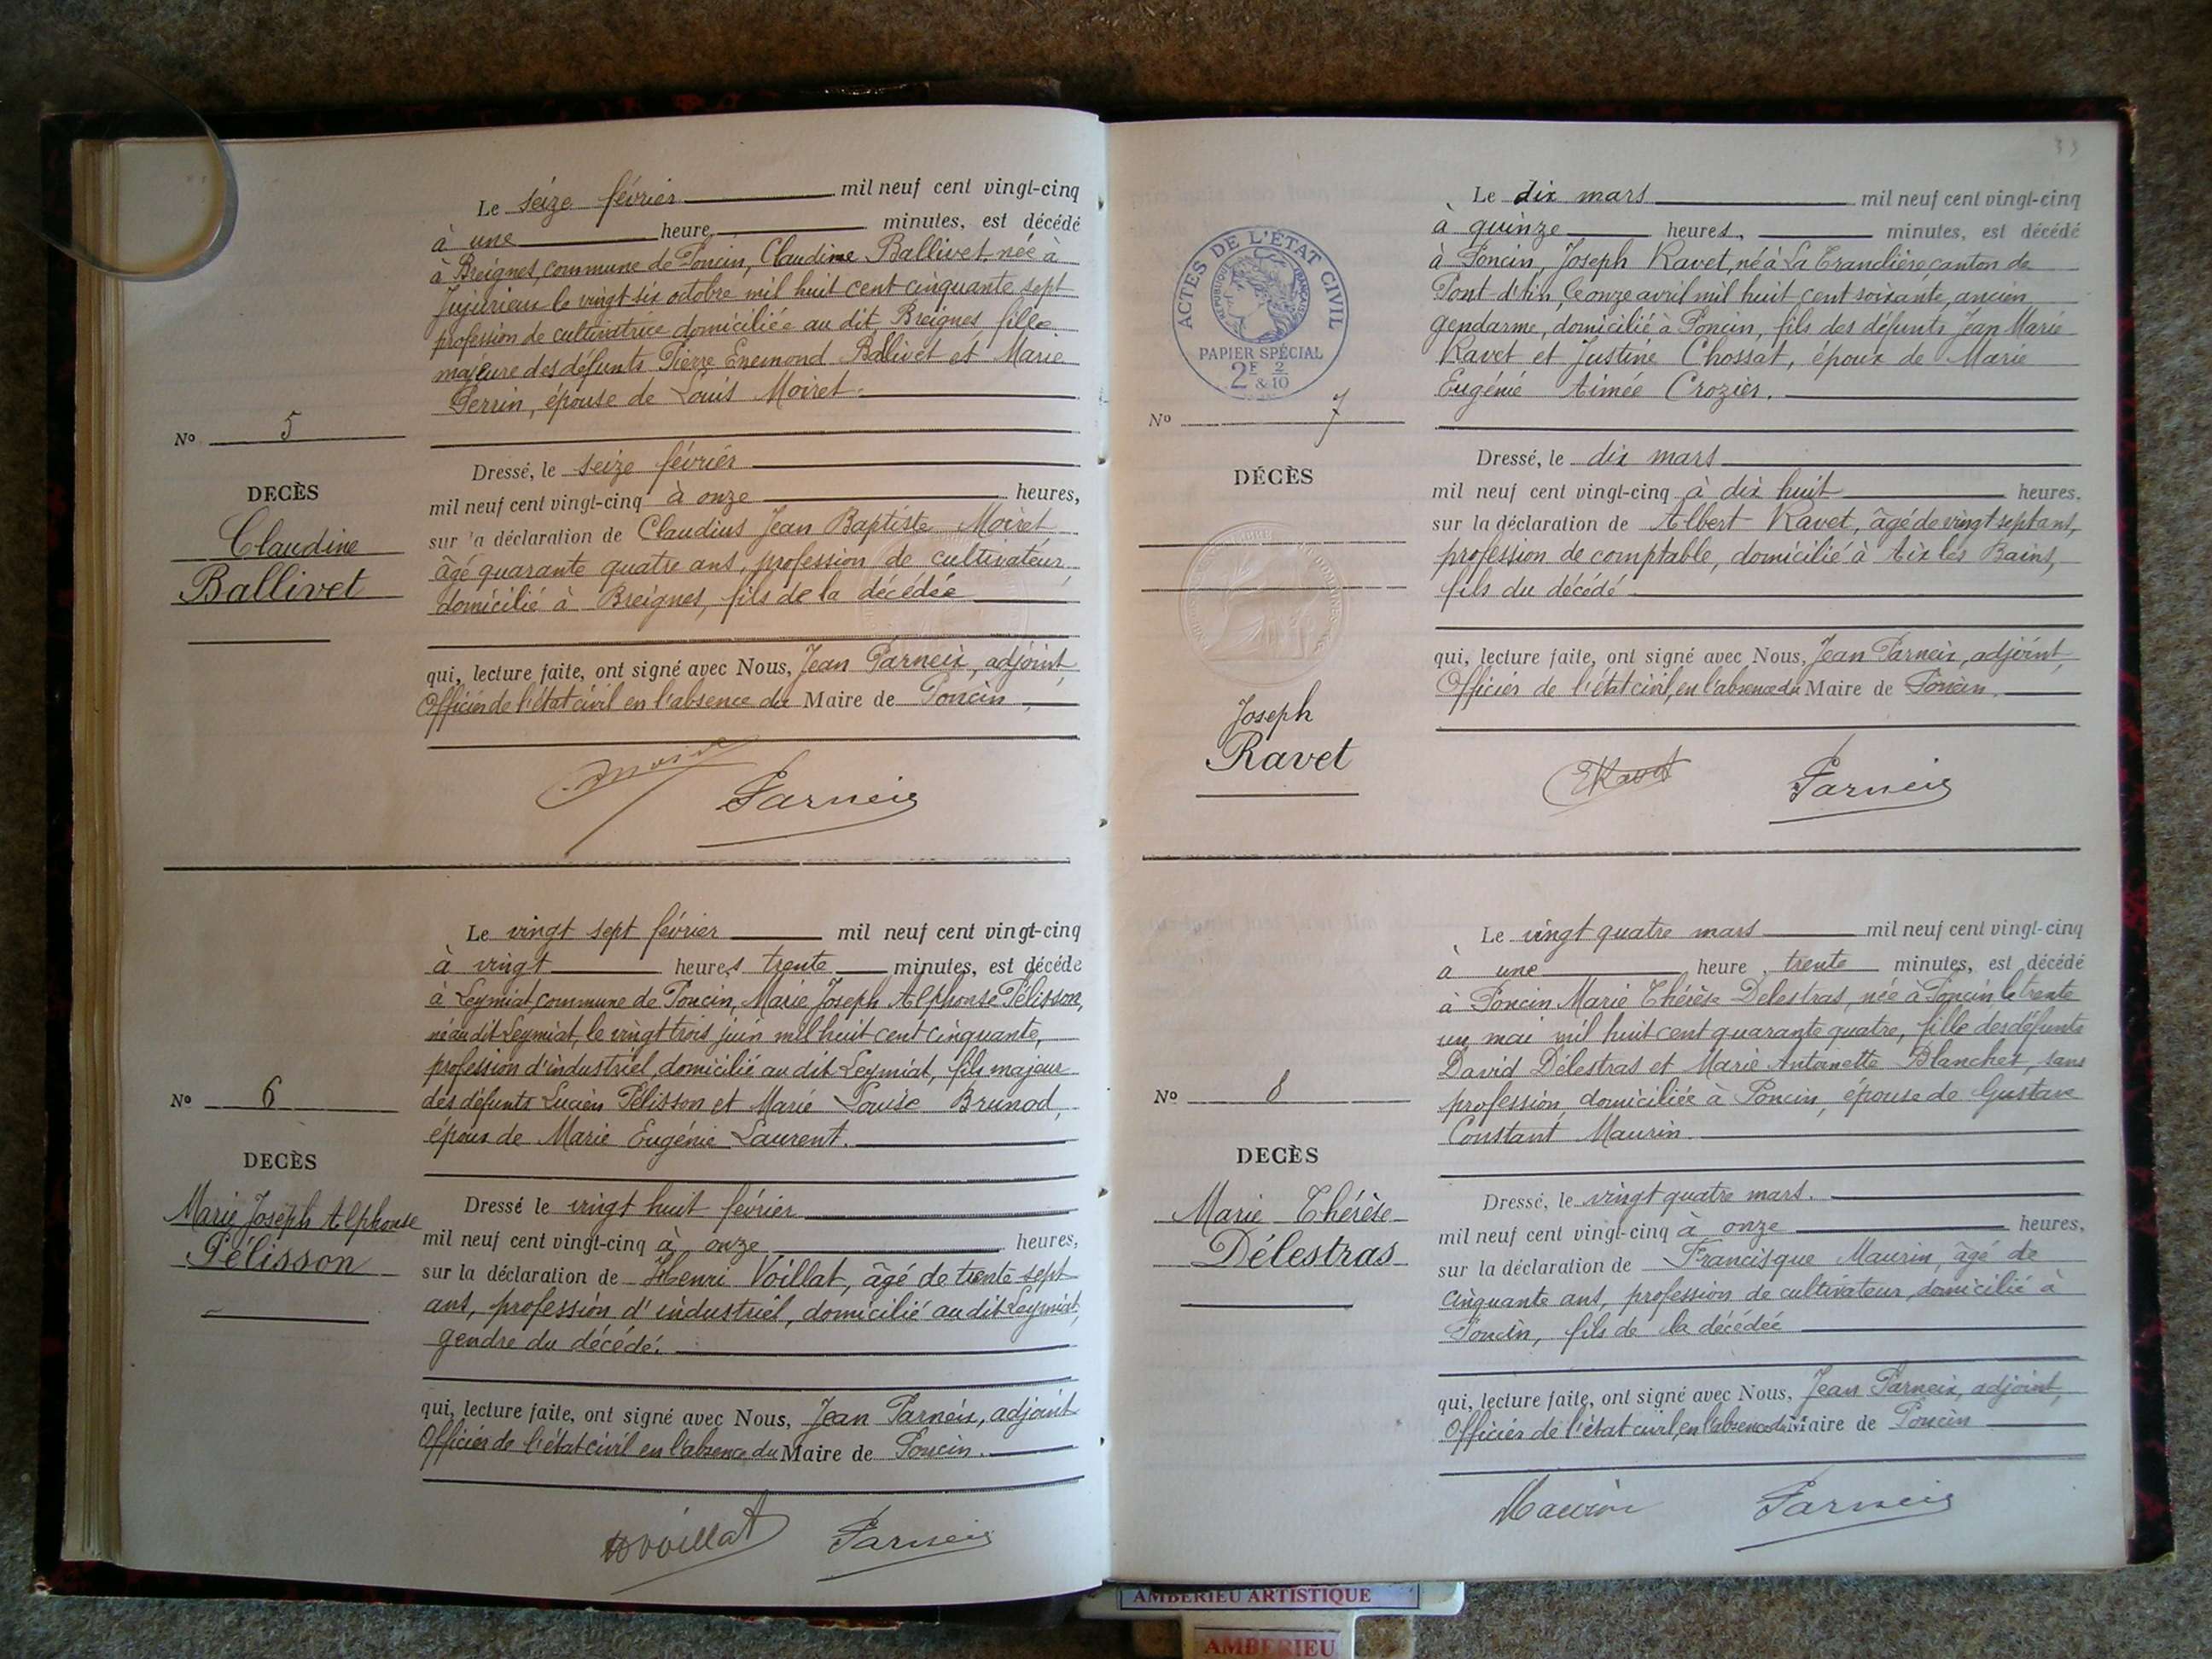 Le seize février mil neuf cent vingt-cinq
à une heure, minutes, est décédé
à Breignes, commune de Poncin, Claudine Ballivet, née à
Jujurieux le vingt six octobre mil huit cent cinquante sept
profession de cultivatrice domiciliée au dit Breignes fille
majeure des défunts Pierre Enemond Ballivet et Marie
Perrin, épouse de Louis Moiret.
No 5
Dressé, le seize février
DECÈS
mil neuf cent vingt-cinq à onze heures,
Claudine
sur la déclaration de Claudius Jean Baptiste Moiret
Ballivet
âgé quarante quatre ans, profession de cultivateur,
domicilié à Breignes, fils de la décédée
qui, lecture faite, ont signé avec Nous, Jean Parneix, adjoint,
Officier de l'état civil en l'absence du Maire de Poncin,
Parneix
Le vingt sept février mil neuf cent vingt-cinq
à vingt heures trente minutes, est décédé
à Leymiat, commune de Poncin, Marie Joseph Alphonse Pélisson,
né au dit Leymiat, le vingt trois juin mil huit cent cinquante,
profession d'industriel, domicilié au dit Leymiat, fils majeur
des défunts Lucien Pélisson et Marie Louise Brunod,
époux de Marie Eugénie Laurent.
No 6
DECÈS
Dressé le vingt huit février
Marie Joseph Alphonse
Pélisson
mil neuf cent vingt-cinq à onze heures,
sur la déclaration de Henri Voillat, âgé de trente sept
ans, profession d'industriel, domicilié au dit Leymiat,
gendre du décédé.
qui, lecture faite, ont signé avec Nous, Jean Parneix, adjoint
Officier de l'état civil en l'absence du Maire de Poncin.
Voillat Parneix
33
Le dix mars mil neuf cent vingt-cinq
à quinze heures, minutes, est décédé
à Poncin, Joseph Ravet, né à La Tranclière canton de
Pont-d'Ain, le onze avril mil huit cent soixante, ancien
gendarme, domicilié à Poncin, fils des défunts Jean Marie
Ravet et Justine Chossat, époux de Marie
Eugénie Aimée Crozier.
ACTES DE L'ÉTAT CIVIL
RÉPUBLIQUE FRANÇAISE
PAPIER SPÉCIAL
2F & 2/10
No 7
DÉCÈS
Dressé, le dix mars
mil neuf cent vingt-cinq à dix huit heures.
sur la déclaration de Albert Ravet, âgé de vingt sept ans,
profession de comptable, domicilié à Aix les Bains,
fils du décédé
qui, lecture faite, ont signé avec Nous, Jean Parneix, adjoint,
Officier de l'état civil, en l'absence du Maire de Poncin.
Joseph
Ravet
Ravet Parneix
Le vingt quatre mars mil neuf cent vingt-cinq
à une heure trente minutes, est décédé
à Poncin Marie Thérèse Delestras, née à Poncin le trente
un mai mil huit cent quarante quatre, fille des défunts
David Délestras et Marie Antoinette Blanchet, sans
profession, domiciliée à Poncin, épouse de Gustave
Constant Maurin.
No 8
DECÈS
Dressé, le vingt quatre mars.
Marie Thérèse
Délestras
mil neuf cent vingt-cinq à onze heures,
sur la déclaration de Francisque Maurin, âgé de
cinquante ans, profession de cultivateur, domicilié à
Poncin, fils de la décédée
qui, lecture faite, ont signé avec Nous, Jean Parneix, adjoint,
Officier de l'état civil, en l'absence du Maire de Poncin
Maurin Parneix
AMBERIEU ARTISTIQUE
AMBERIEU